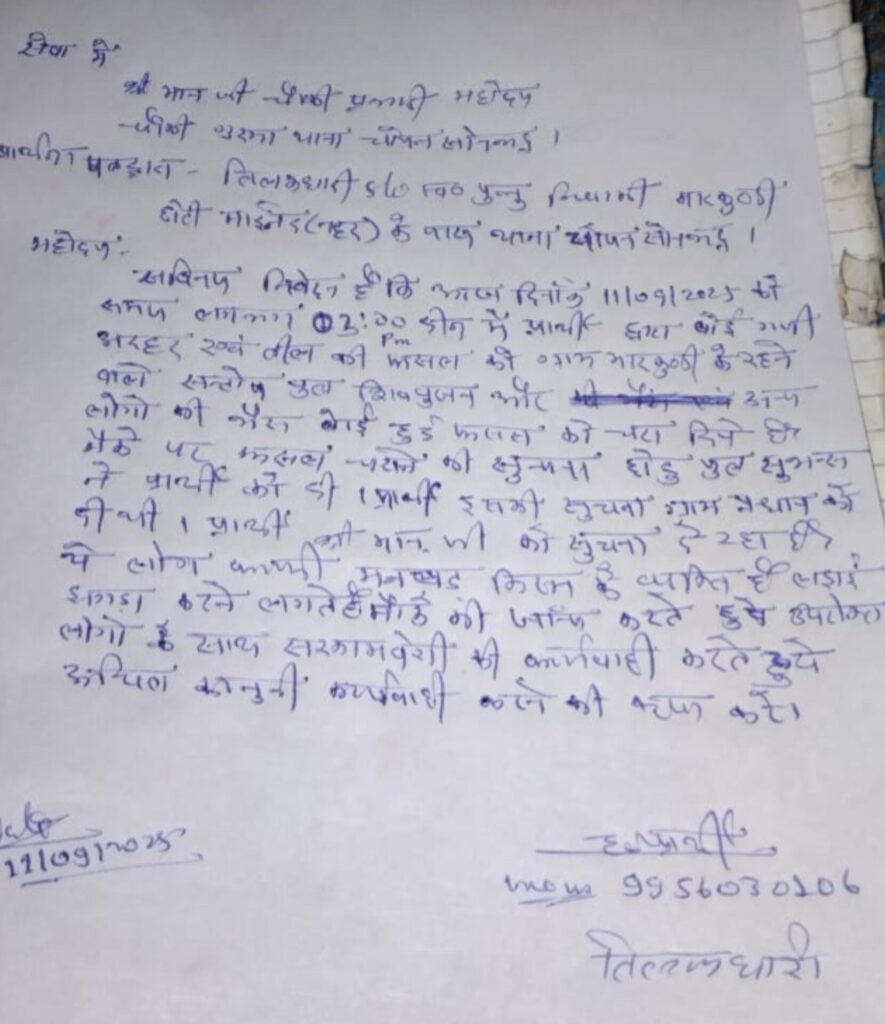 सेवा में
श्री मान जी चौकी प्रभारी महोदय
चौकी गुरमा थाना चोपन सोनभद्र ।
प्रार्थना पत्र द्वारा - तिलकधारी S/O स्व0 मुन्नु निवासी मारकुण्डी
छोटी माईनर (नहर) के पास थाना चोपन सोनभद्र ।
महोदय,
सविनय निवेदन है कि आज दिनांक 11/09/2025 को
समय लगभग 03:00 Pm दीन में प्रार्थी द्वारा बोई गयी
अरहर एवं तील की फसल को ग्राम मारकुण्डी के रहने
वाले सन्तोष पुत्र शिवपुजन और अन्य
लोगो की भैस बोई हुई फसल को चरा दिये है।
मौके पर फसल चराने की सुचना छोटु पुत्र
ने प्रार्थी को दी । प्रार्थी इसकी सुचना ग्राम प्रधान को
दी थी । प्रार्थी श्री मान जी को सुचना दे रहा है।
ये लोग काफी मनबढ़ किस्म के व्यक्ति है लड़ाई
झगड़ा करने लगते है मौके की जांच करते हुये उपरोक्त
लोगो के साथ की कार्यवाही करते हुये
उचित कानुनी कार्यवाही करने की कृपा करें।
Date
11/09/2025
ह0 प्रार्थी
mo no 9956030106
तिलकधारी